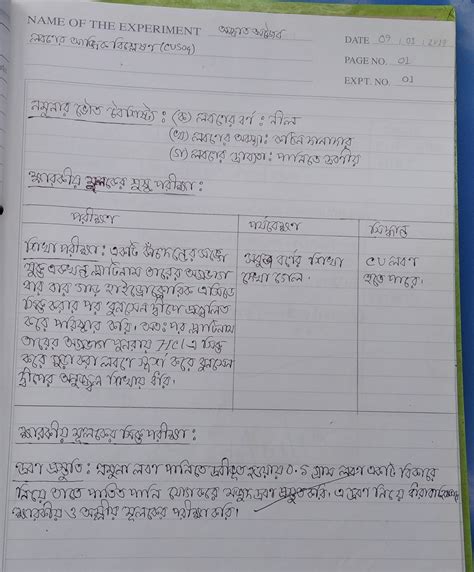 NAME OF THE EXPERIMENT অজ্ঞাত অজৈব
লবণের আঙ্গিক বিশ্লেষণ (CuSO4)
DATE 09
PAGE NO. 01
EXPT. NO. 01
নমুনার ভৌত বৈশিষ্ট্য : (ক) লবণের বর্ণ : নীল
(খ) লবণের অবস্থা : কঠিন দানাদার
(গ) লবণের দ্রাব্যতা : পানিতে দ্রবণীয়
ক্ষারকীয় মূলকের শুষ্ক পরীক্ষা :
পরীক্ষণ পর্যবেক্ষণ সিদ্ধান্ত
শিখা পরীক্ষা : একটি কাঁচদন্ডের সঙ্গে
যুক্ত একখন্ড প্লাটিনাম তারের অগ্রভাগ
বার বার গাঢ় হাইড্রোক্লোরিক এসিডে
সিক্ত করার পর বুনসেন দ্বীপে প্রজ্বলিত
করে পরিষ্কার করি। অতঃপর প্লাটিনাম
তারের অগ্রভাগ পুনরায় HCl এ সিক্ত
করে গুড়া করা লবণে স্পর্শ করে বুনসেন
দ্বীপের অনুজ্জ্বল শিখায় ধরি।
সবুজ বর্ণের শিখা
দেখা গেল।
Cu লবণ
হতে পারে।
ক্ষারকীয় মূলকের সিক্ত পরীক্ষা :
দ্রবণ প্রস্তুতি : নমুনা লবণ পানিতে দ্রবীভূত হওয়ায় 0.5 গ্রাম লবণ একটি বিকারে
নিয়ে তাতে পাতিত পানি যোগ করে স্বচ্ছ দ্রবণ প্রস্তুত করি। এ দ্রবণ নিয়ে
ক্ষারকীয় ও অম্লীয় মূলকের পরীক্ষা করি।